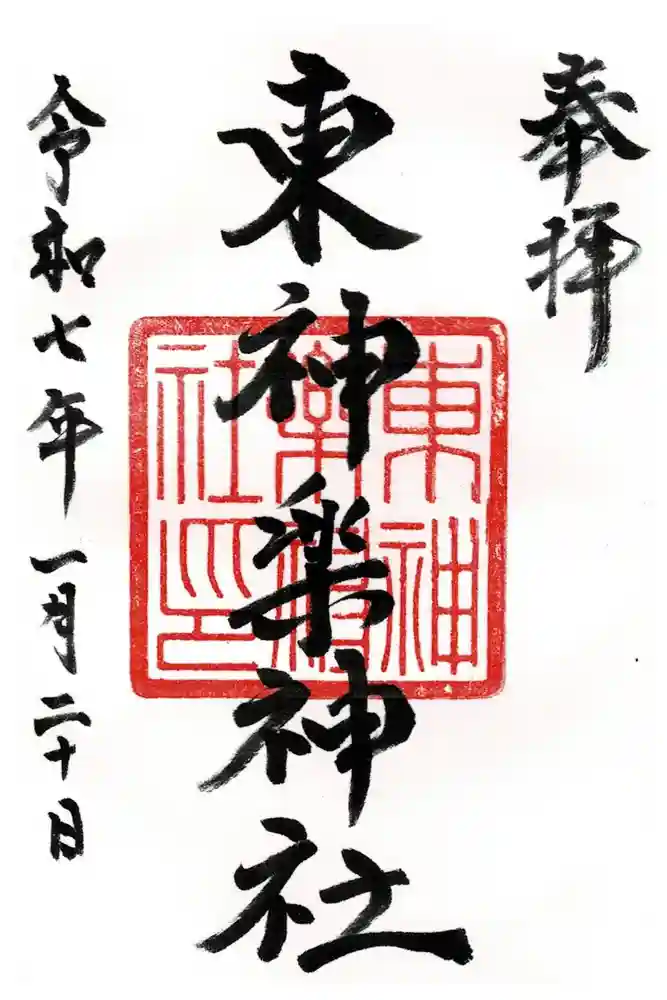 奉拝
東神楽神社
東神
楽神
社印
令和七年一月二十日